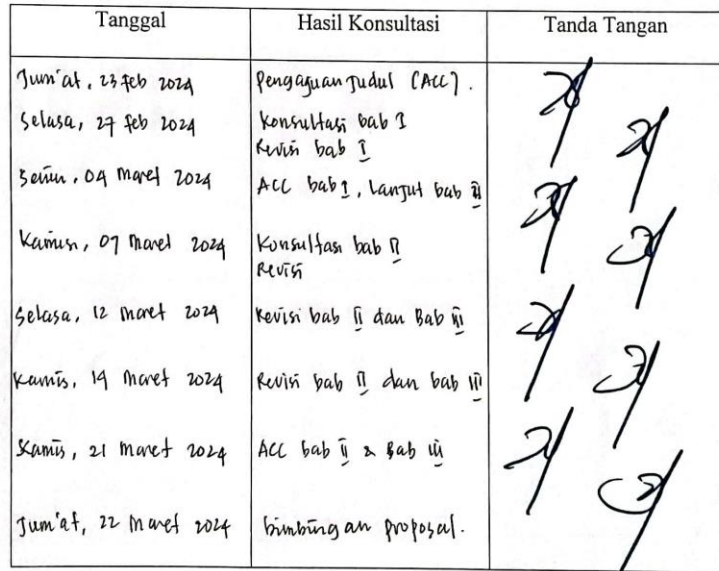 Tanggal Hasil Konsultasi Tanda Tangan
Jum'at, 23 feb 2024 Pengajuan Judul (ACC).
Selasa, 27 feb 2024 Konsultasi bab I
Revisi bab I
Senin, 04 Maret 2024 ACC bab I, Lanjut bab II
Kamis, 07 Maret 2024 Konsultasi bab II
Revisi
Selasa, 12 Maret 2024 Revisi bab II dan Bab III
Kamis, 14 Maret 2024 Revisi bab II dan bab III
Kamis, 21 Maret 2024 ACC bab II & Bab III
Jum'at, 22 Maret 2024 bimbingan proposal.